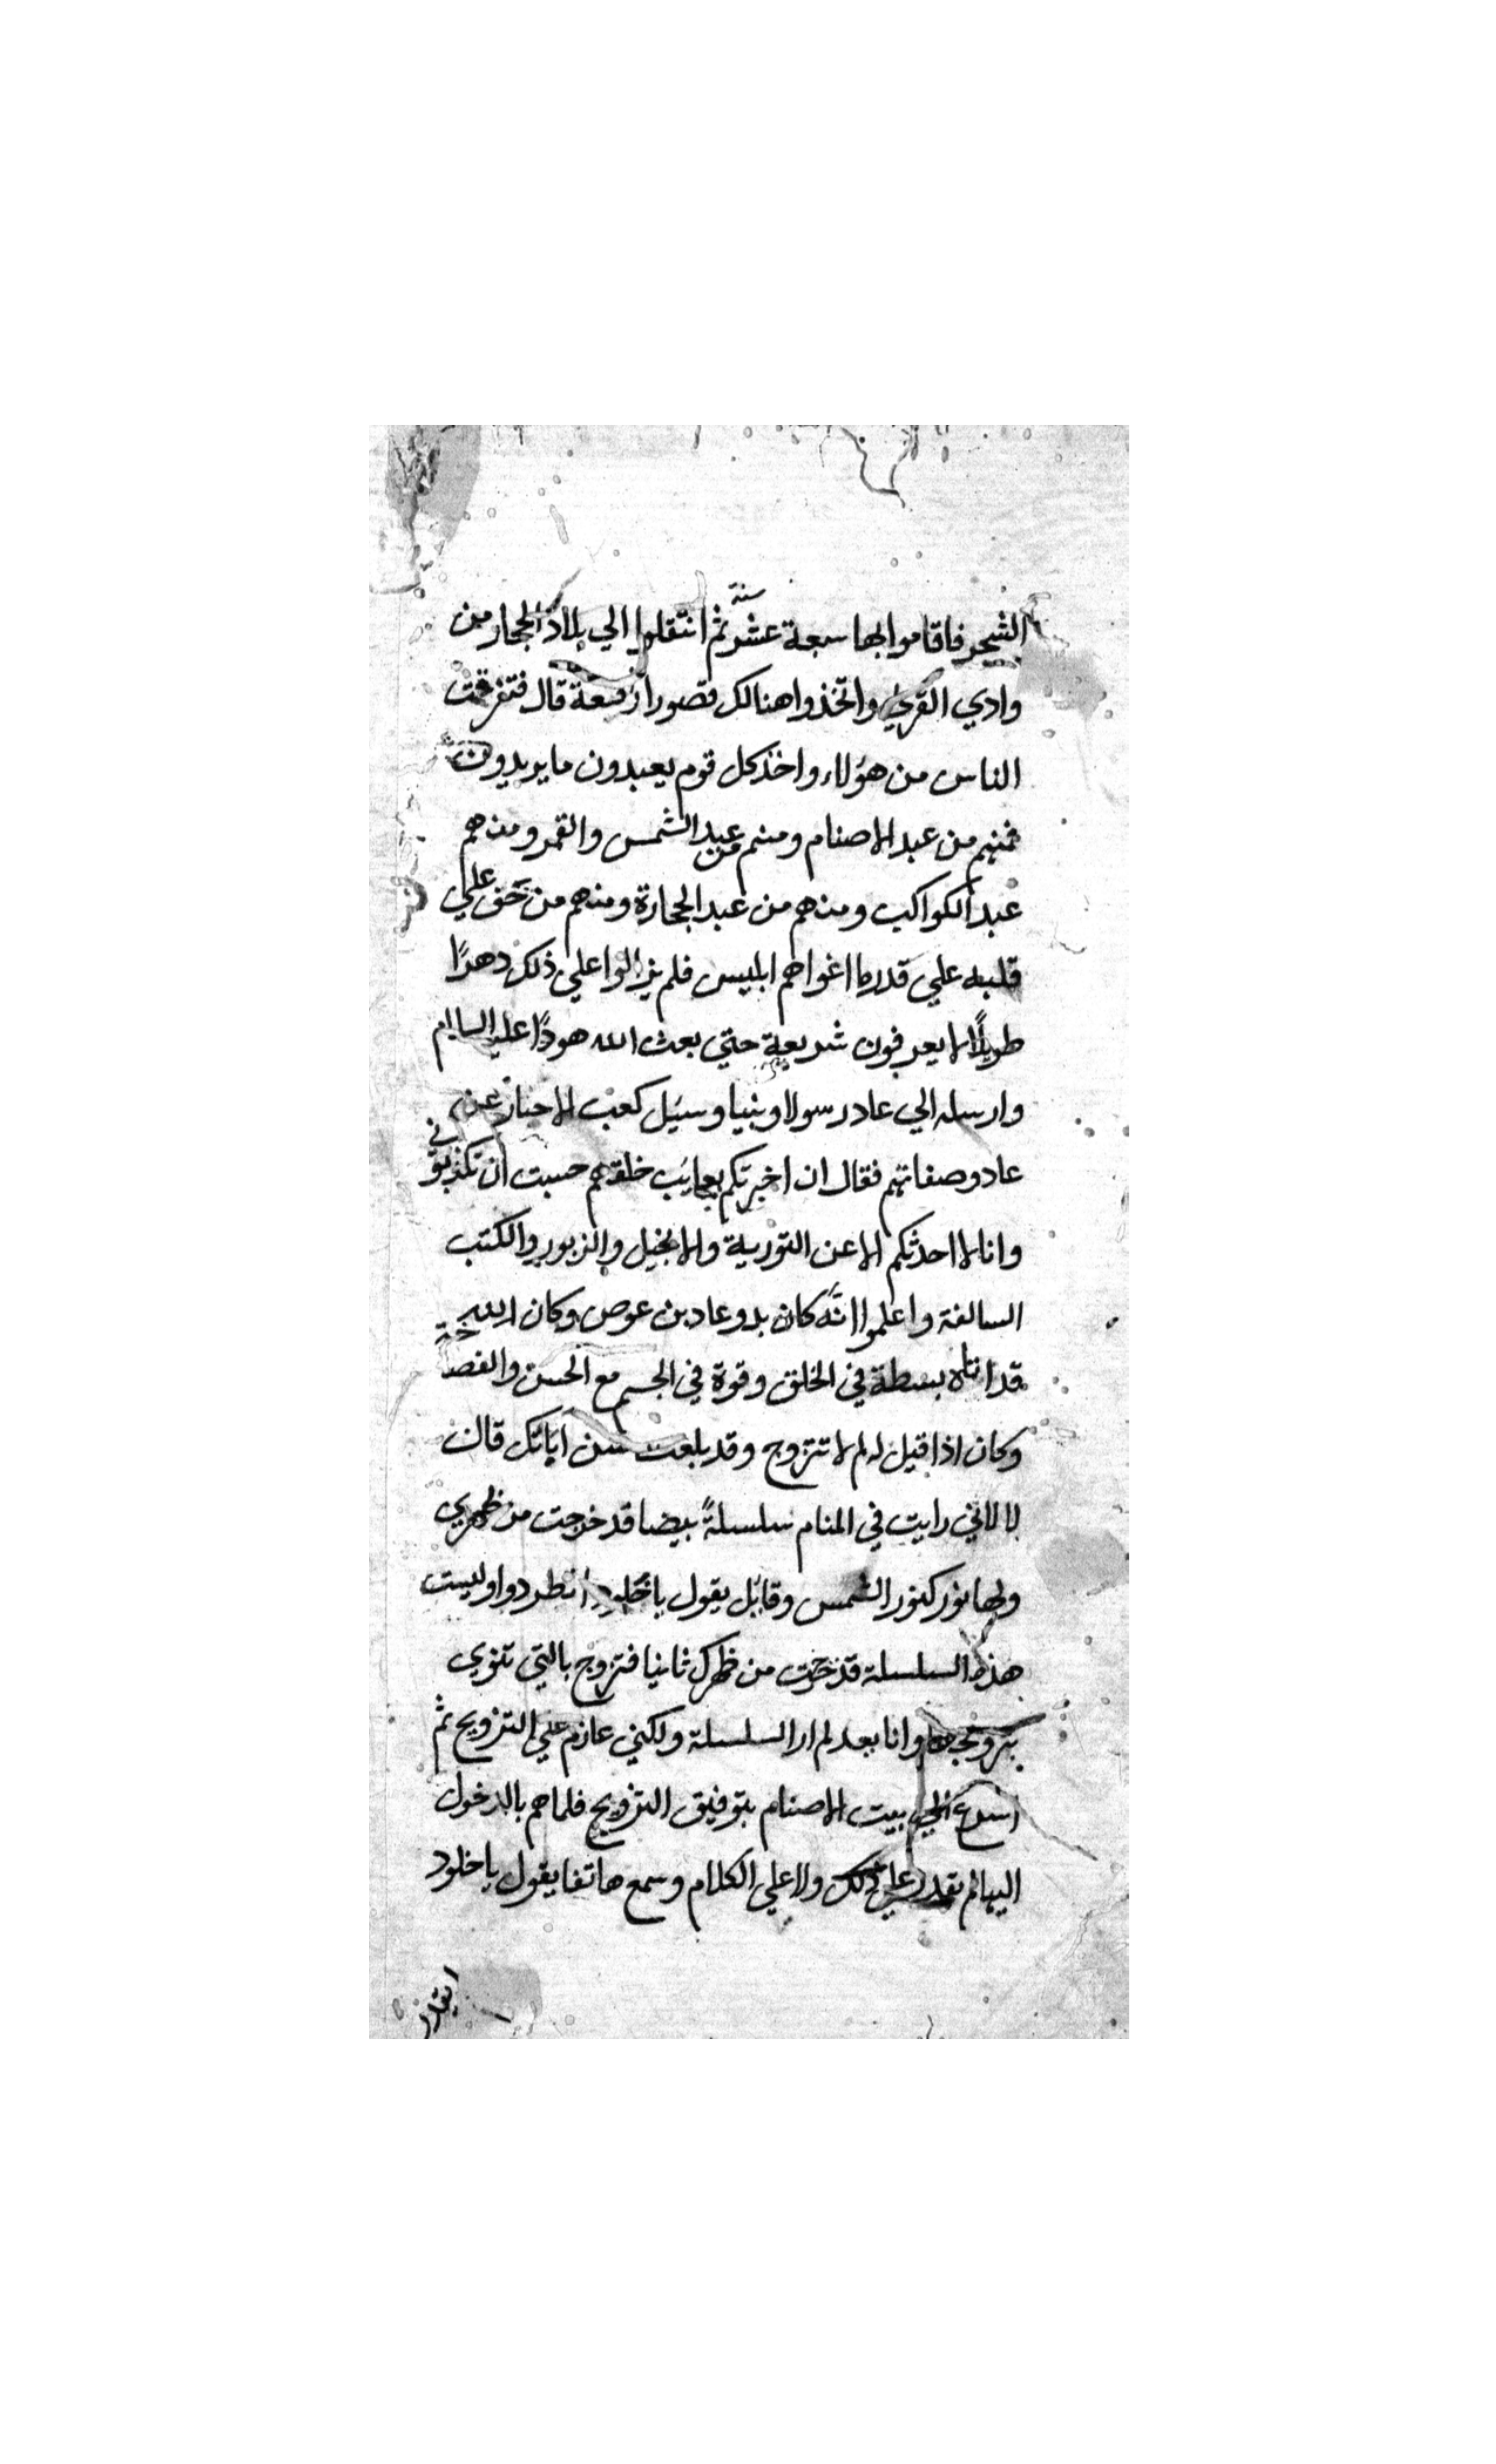 الشجر فاقاموا بها سبعة عشر سنة ثم انتقلوا الي بلاد الحجار من
وادي القري واتخذوا هنالك قصورا رفعة قال فتفرقت
الناس من هؤلاء واخذ كل قوم يعبدون ما يريدون
فمنهم من عبد الاصنام ومنهم من عبد الشمس والقمر ومنهم
عبد الكواكب ومنهم من عبد الحجارة ومنهم من علي
قلبه علي قدر ما اغواهم ابليس فلم يزالوا علي ذلك دهرًا
طويلًا لا يعرفون شريعة حتي بعث الله هودًا عليه السلام
وارسله الي عاد رسولا ونبيا وسيل كعب الاحبار عن
عاد وصفاتهم فقال ان اخبرتكم بعجايب خلقهم حسبت ان تكذبوني
وانا لا احدثكم الا عن التورية والانجيل والزبور والكتب
السالفة واعلموا انَّه كان بدو عاد بن عوص وكان الله
قد اتاه بسطة في الخلق وقوة في الجسم مع الحسن والفصاحة
وكان اذا قيل له لم لا تتزوج وقد بلغت سن ابائك قال
لا لاني رايت في المنام سلسلةً بيضا قد خرجت من ظهري
ولها نور كنور الشمس وقائل يقول يا انظر دوا وليست
هذه السلسلة قد خرجت من ظهرك ثانيا فتزوج بالتي تنوي
بتزويجها وانا بعد لم ار السلسلة ولكني عازم علي التزويج ثم
اسرع الي بيت الاصنام بتوفيق التزويج فلما هم بالدخول
اليها لم يقدر علي ذلك ولا علي الكلام وسمع هاتفا يقول يا خلود